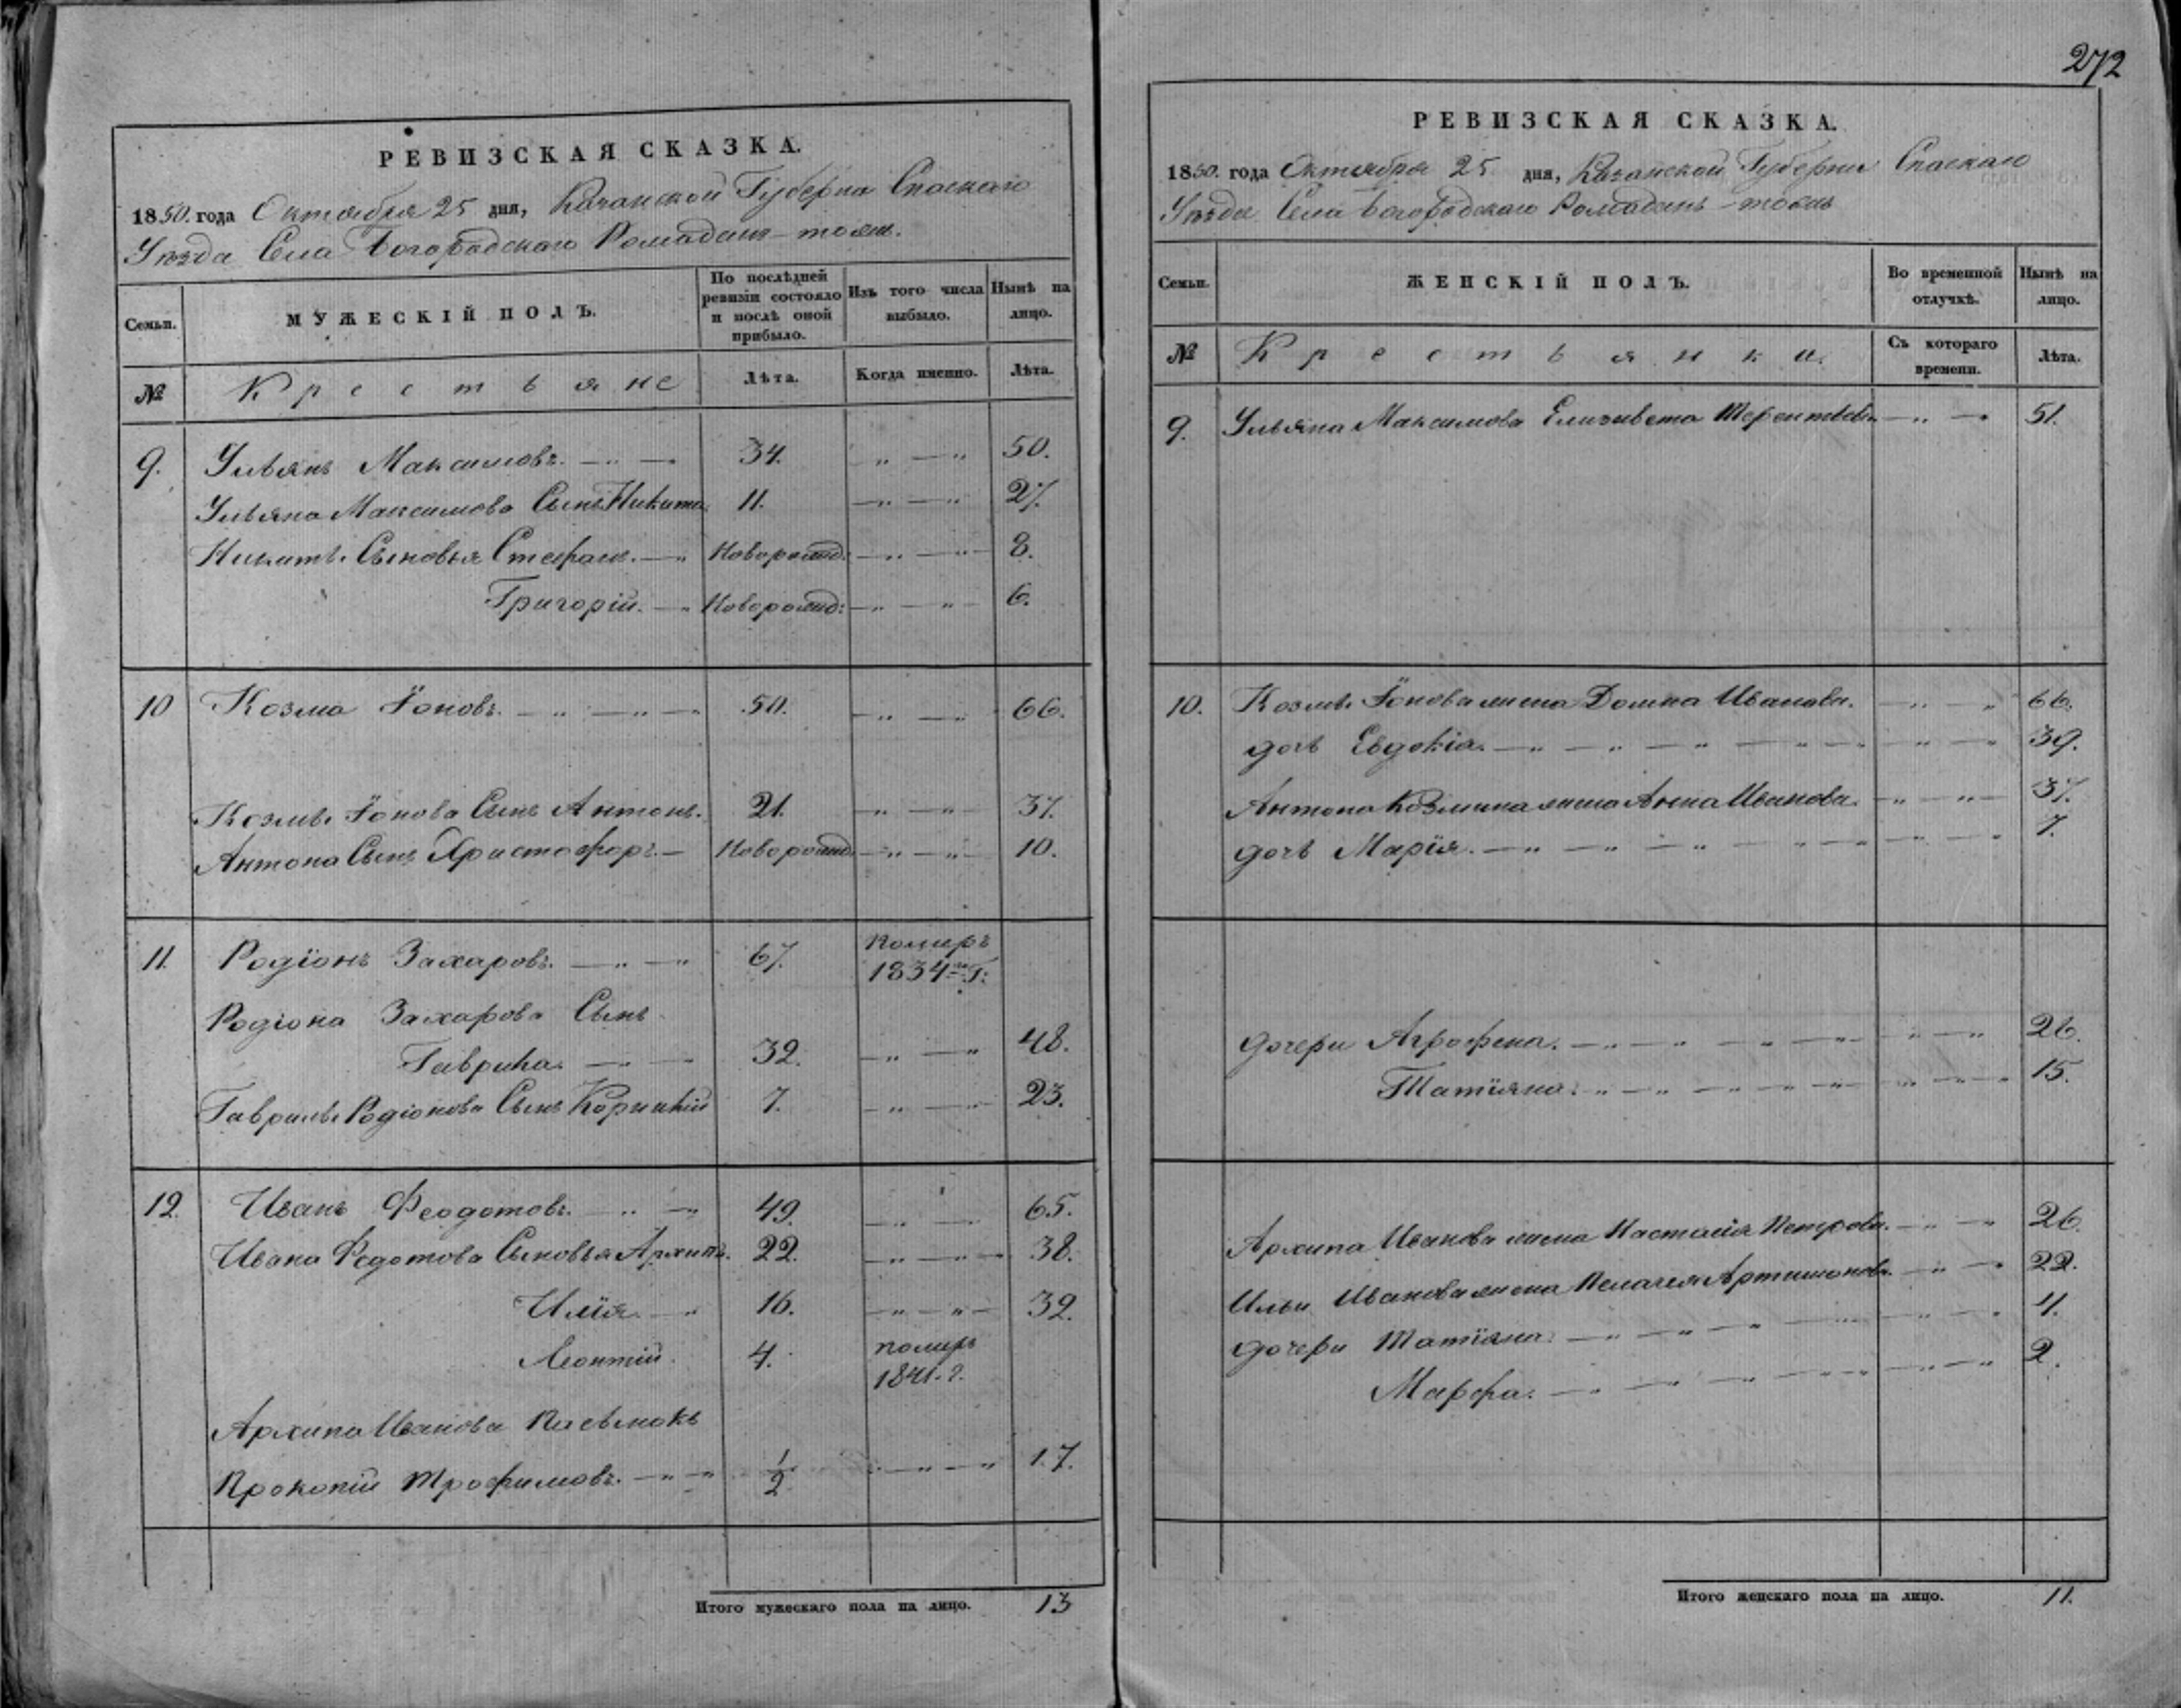 272
РЕВИЗСКАЯ СКАЗКА.
1850. года Октября 25 дня, Казанской Губерніи Спаскаго
Уѣзда Села Богородскаго Ромадань тожъ.
Семьи.
МУЖЕСКІЙ ПОЛЪ.
По послѣдней ревизіи состояло и послѣ оной прибыло.
Изъ того числа выбыло.
Нынѣ на лицо.
№
Крестьяне
Лѣта.
Когда именно.
Лѣта.
9. Ульянъ Максимовъ. 34. 50.
Ульяна Максимова Сынъ Никита 11. 27.
Никиты Сыновья Стефанъ. Новорожд: 8.
Григорій. Новорожд: 6.
10 Козма Іоновъ. 50. 66.
Козмы Іонова Сынъ Антонъ. 21. 37.
Антона Сынъ Христофоръ. Новорожд. 10.
11. Родіонъ Захаровъ. 67. померъ
1834го Г:
Родіона Захарова Сынъ
Гаврила. 32. 48.
Гаврилы Родіонова Сынъ Корнилій 7. 23.
12. Иванъ Феодотовъ. 49. 65.
Ивана Федотова Сыновья Архипъ. 22. 38.
Илія. 16. 32.
Леонтій. 4. померъ
1841. г.
Архипа Иванова Племянокъ
Прокопій Трофимовъ. 1/2 17.
Итого мужескаго пола на лицо. 13
РЕВИЗСКАЯ СКАЗКА.
1850. года Октября 25 дня, Казанской Губерніи Спаскаго
Уѣзда Села Богородскаго Ромадань тожъ
Семьи.
ЖЕНСКІЙ ПОЛЪ.
Во временной отлучкѣ.
Нынѣ на лицо.
№
Крестьянки.
Съ котораго времени.
Лѣта.
9. Ульяна Максимова Елизавета Терентьева 51.
10. Козмы Іонова жена Домна Иванова. 66.
дочь Евдокія. 39.
Антона Козмина жена Анна Иванова. 37.
дочь Марія. 7.
дочери Агрофена. 26.
Татіяна. 15.
Архипа Иванова жена Насталія Петрова. 26.
Ильи Иванова жена Пелагея Артимонова. 22.
дочери Татіяна. 4.
Марфа. 2.
Итого женскаго пола на лицо. 11.